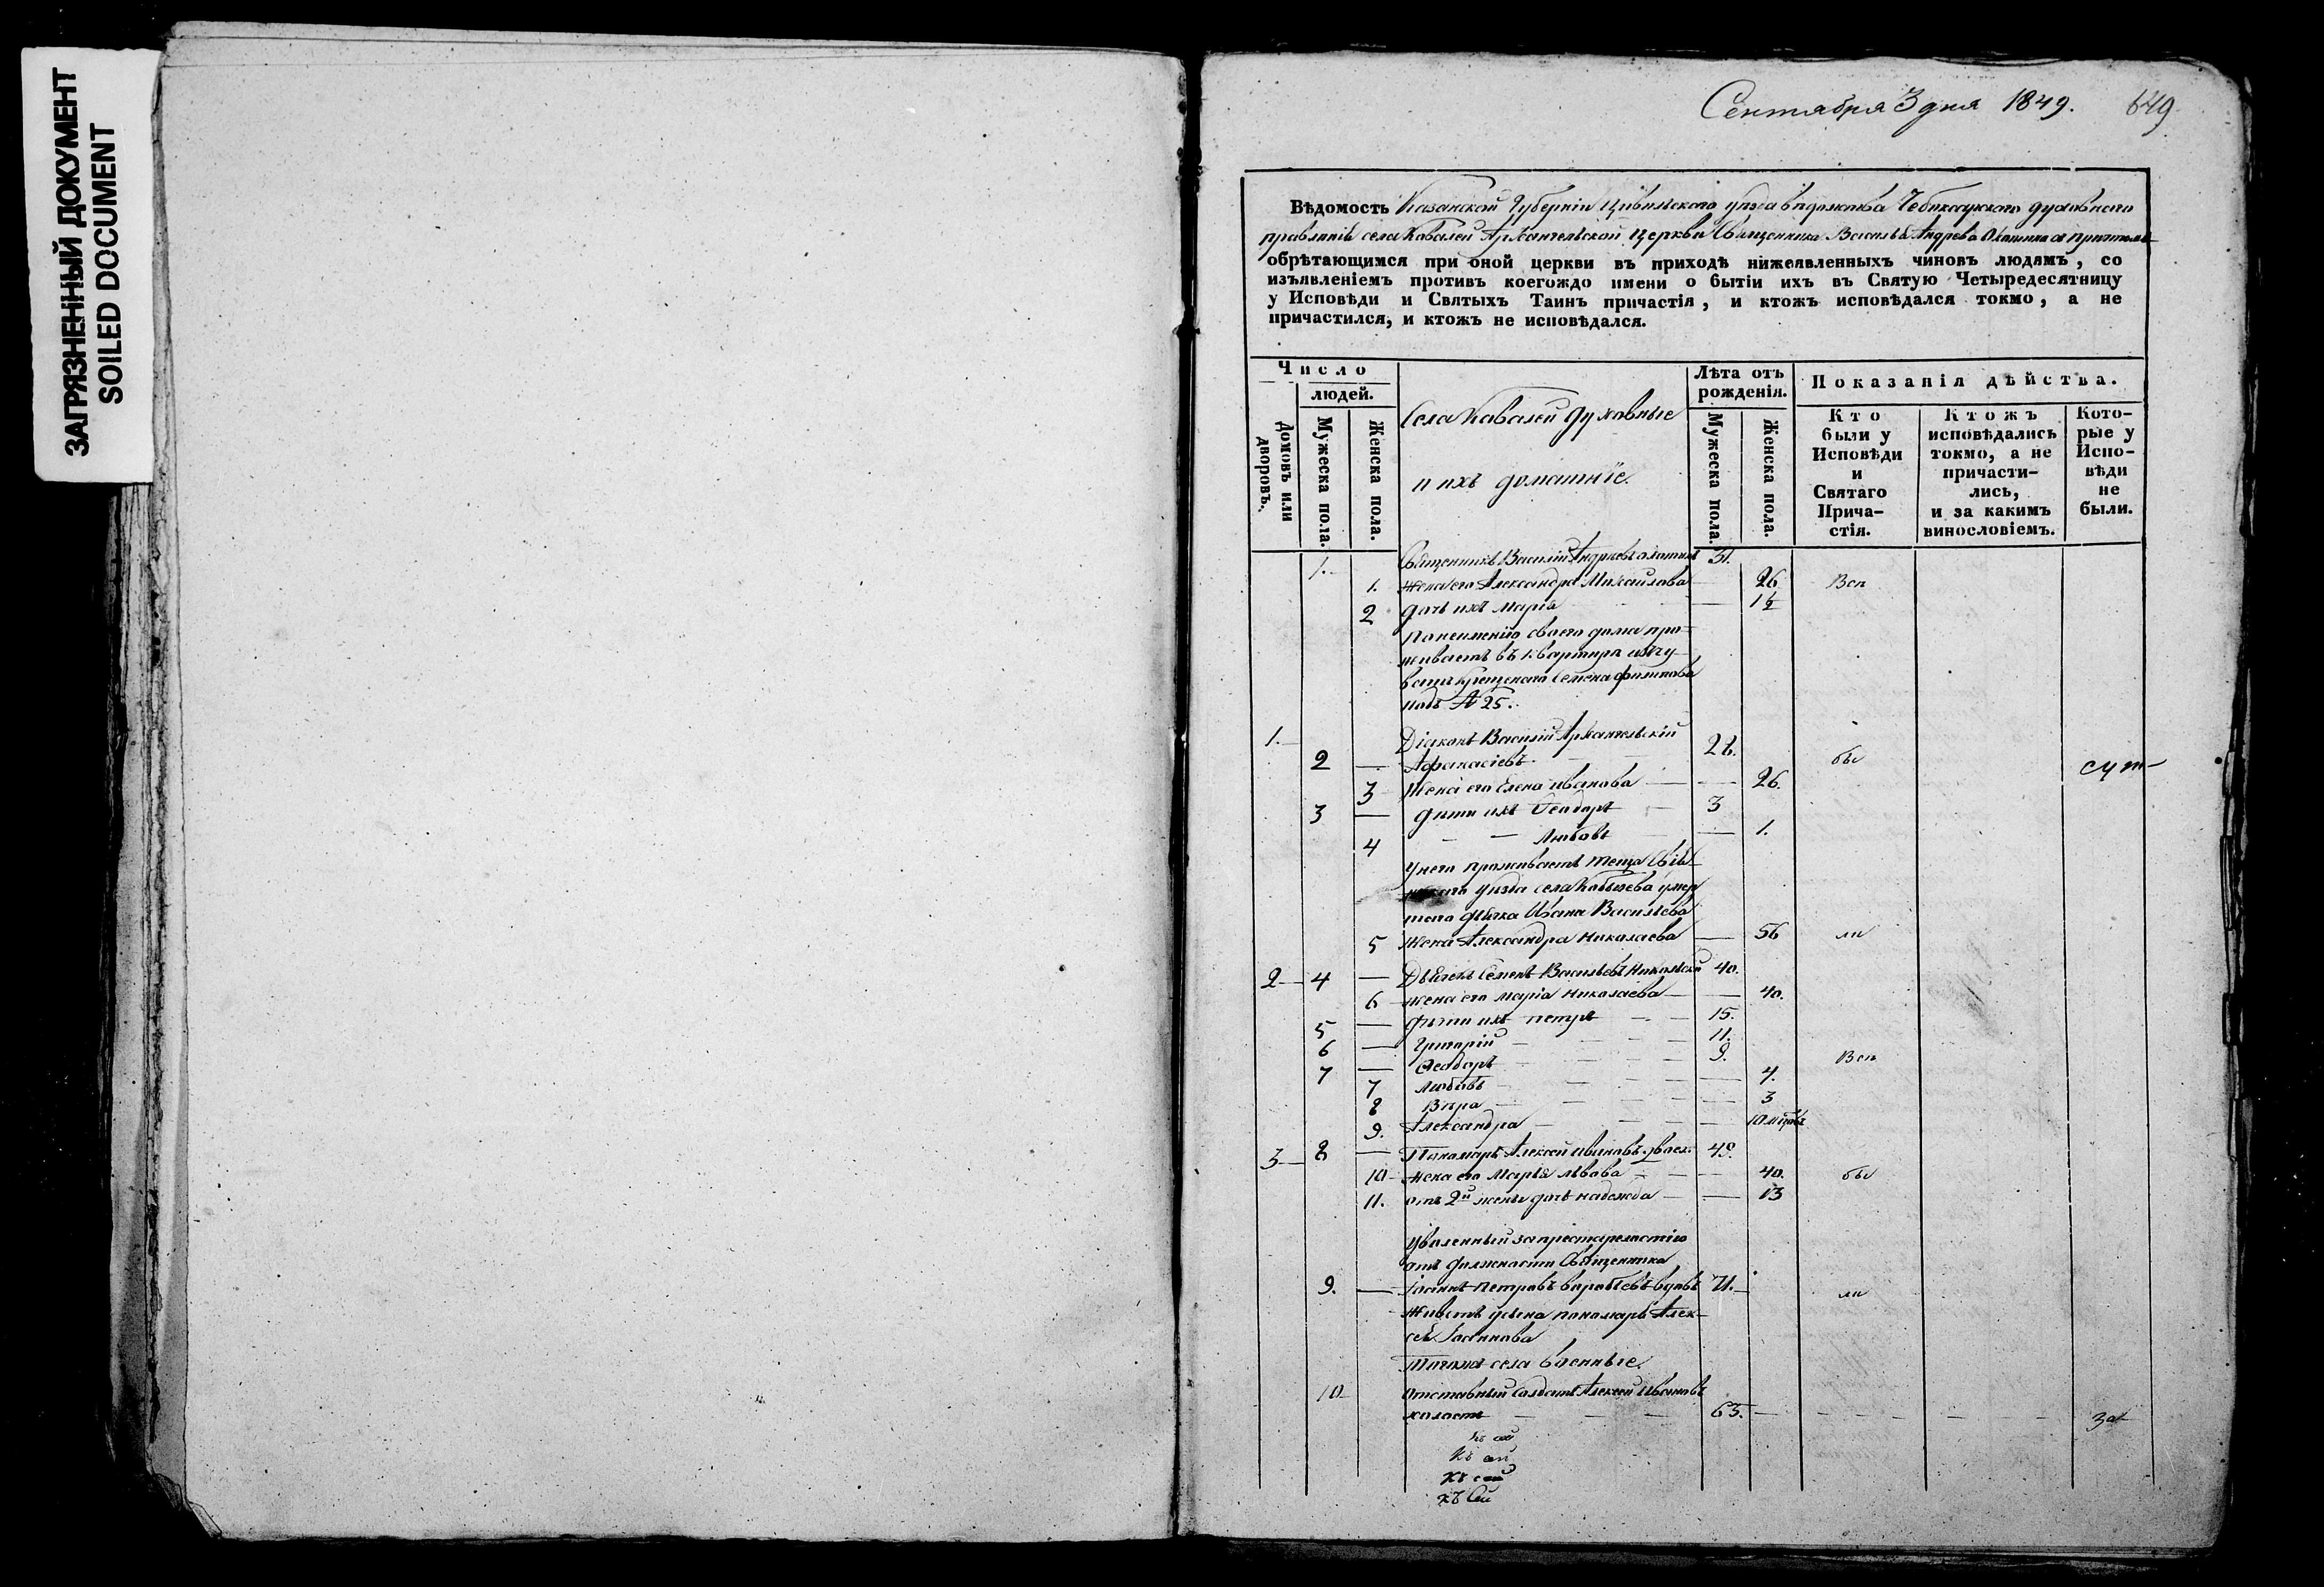 ЗАГРЯЗНЕННЫЙ ДОКУМЕНТ
SOILED DOCUMENT
Сентября 3 дня 1849. 649
Вѣдомость Казанской Губерніи Цивильскаго уѣзда вѣдомства Чебоксарскаго духовнаго
правленія села Ковалей Архангельской церкви Священника Василья Андреева с причтомъ
обрѣтающимся при оной церкви въ приходѣ нижеявленныхъ чиновъ людямъ, со
изъявленіемъ противъ коегождо имени о бытіи ихъ въ Святую Четыредесятницу
у Исповѣди и Святыхъ Таинъ причастія, и ктожъ исповѣдался токмо, а не
причастился, и ктожъ не исповѣдался.
Число
людей.
Домовъ или дворовъ.
Мужеска пола.
Женска пола.
Села Ковалей духовные
и ихъ домашніе.
Лѣта отъ рожденія.
Мужеска пола.
Женска пола.
Показанія дѣйства.
Кто были у Исповѣди и Святаго Прича-стія.
Ктожъ исповѣдались токмо, а не причасти-лись, и за какимъ винословіемъ.
Кото-рые у Испо-вѣди не были.
1. Священникъ Василій Андреевъ 31.
1. Жена его Александра Михайлова — 26 Вси
2 дочь ихъ Марія — 1½
По неименію своего дома про-
живаетъ въ квартире у чу-
ваш крещенаго Семена Филипова
подъ № 25.
1. Діаконъ Василій Архангельскій
2 — Афанасіевъ 28. бы сут-
3 Жена его Елена Иванова — 26.
3 — дети ихъ Ѳеодоръ — 3
4 — — Любовь — 1.
У него проживаетъ теща
уѣзда села умер
шаго дьячка Ивана Васильева
5 Жена Александра Николаева — 56 ли
2 — 4 — Дьячекъ Семенъ Васильевъ Никольскій 40.
6 жена его Марія Николаева — 40.
5 — дѣти ихъ Петръ — — 15.
6 — Григорій — — — 11.
7 — Ѳеодоръ — — — 9. Вси
7 Любовь — — — 4.
8 Вѣра — — — 3
9. Александра — — — 10 мѣсяц.
3 — 8 — Пономарь Алексей Ивановъ 48.
10 — Жена его Марья Львова — — 40. бы
11. отъ 2й жены дочь Надежда — — 13
Уволенный за престарелостію
отъ должности Священника
9. — Іоаннъ Петровъ вдовъ 71. — ли
Живетъ у сына пономаря Алек-
сея Іоаннова
Тогожъ села военные.
10 Отставный солдатъ Алексей Ивановъ
холостъ — — — 63. — — — — — — — зат